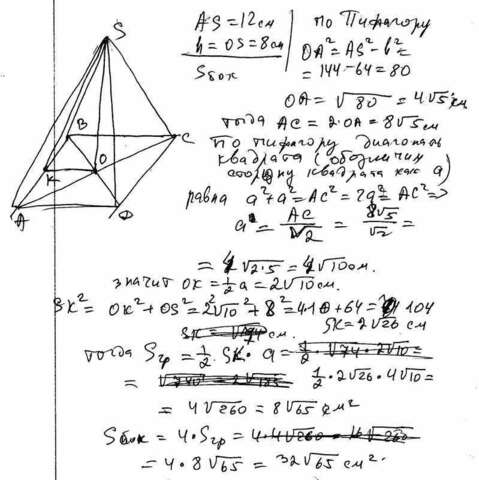 S
B
C
K
O
A
D
AS=12см
h=OS=8см
Sбок
по Пифагору
OA²=AS²-h²=
=144-64=80
OA=√80=4√5 см
тогда AC=2·OA=8√5см
по пифагору диагональ
квадрата (обозначим
сторону квадрата как a)
равна a²+a²=AC²=2a²=AC²=>
a=AC/√2=8√5/√2=
=4√2·5=4√10см.
значит OK=½a=2√10см.
SK²=OK²+OS²=2²√10²+8²=4·10+64=104
SK=2√26 см
тогда Sгр=½·SK·a=
½·2√26·4√10=
=4√260=8√65 см²
Sбок=4·Sгр=
=4·8√65=32√65 см².